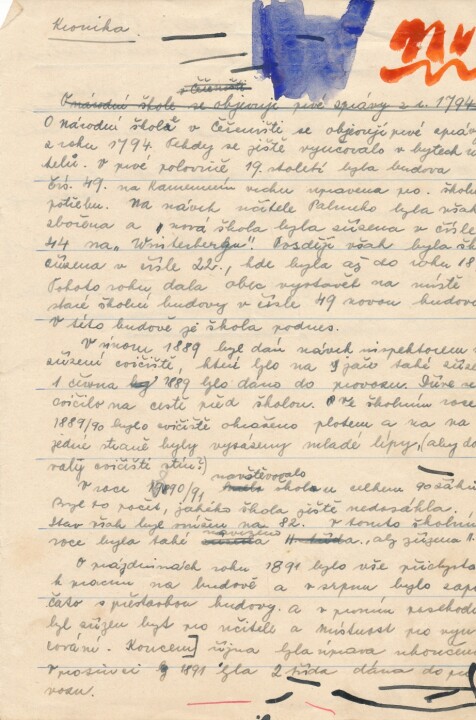 Kronika.
v Číčenští
O národní škole se objevují prvé zprávy z r. 1794
O národní škole v Číčenští se objevují prvé zprávy
z roku 1794. Tehdy se ještě vyučovalo v bytech uči
telů. V prvé polovině 19. století byla budova
čís. 49. na kamenném vrchu upravena pro školní
potřebu. Na návrh učitele byla však
zbořena a nová škola byla zřízena v čísle
44 na „Winterbergu". Později však byla ško
zřízena v čísle 22., kde byla až do roku 18
Tohoto roku dala obec vystavět na místě
staré školní budovy v čísle 49 novou budovu
V této budově je škola podnes.
V únoru 1889 byl dán návrh inspektorem
zřízení cvičiště, které bylo na jaře také zříze
1 června 1889 bylo dáno do provozu. Dříve se
cvičilo na cestě před školou. Ve školním roce
1889/90 bylo cvičiště ohraženo plotem a na
jedné straně byly vysázeny mladé lípy, (aby do
valy cvičišti stín.)
navštěvovalo
V roce 1890/91 školu celkem 90 žáků
Byl to počet, jakého škola ještě nedosáhla.
Stav však byl snížen na 82. V tomto školním
roce byla také II. třída., ale zřízena
O prázdninách roku 1891 bylo vše přichysta
k pracím na budově a v srpnu bylo zapo
čato s přístavbou budovy. a v prvním poschodí
byl zřízen byt pro učitele a místnost pro vyu
čování. Koncem října byla úprava ukončena
V prosinci 1891 byla 2 třída dána do pro
vozu.